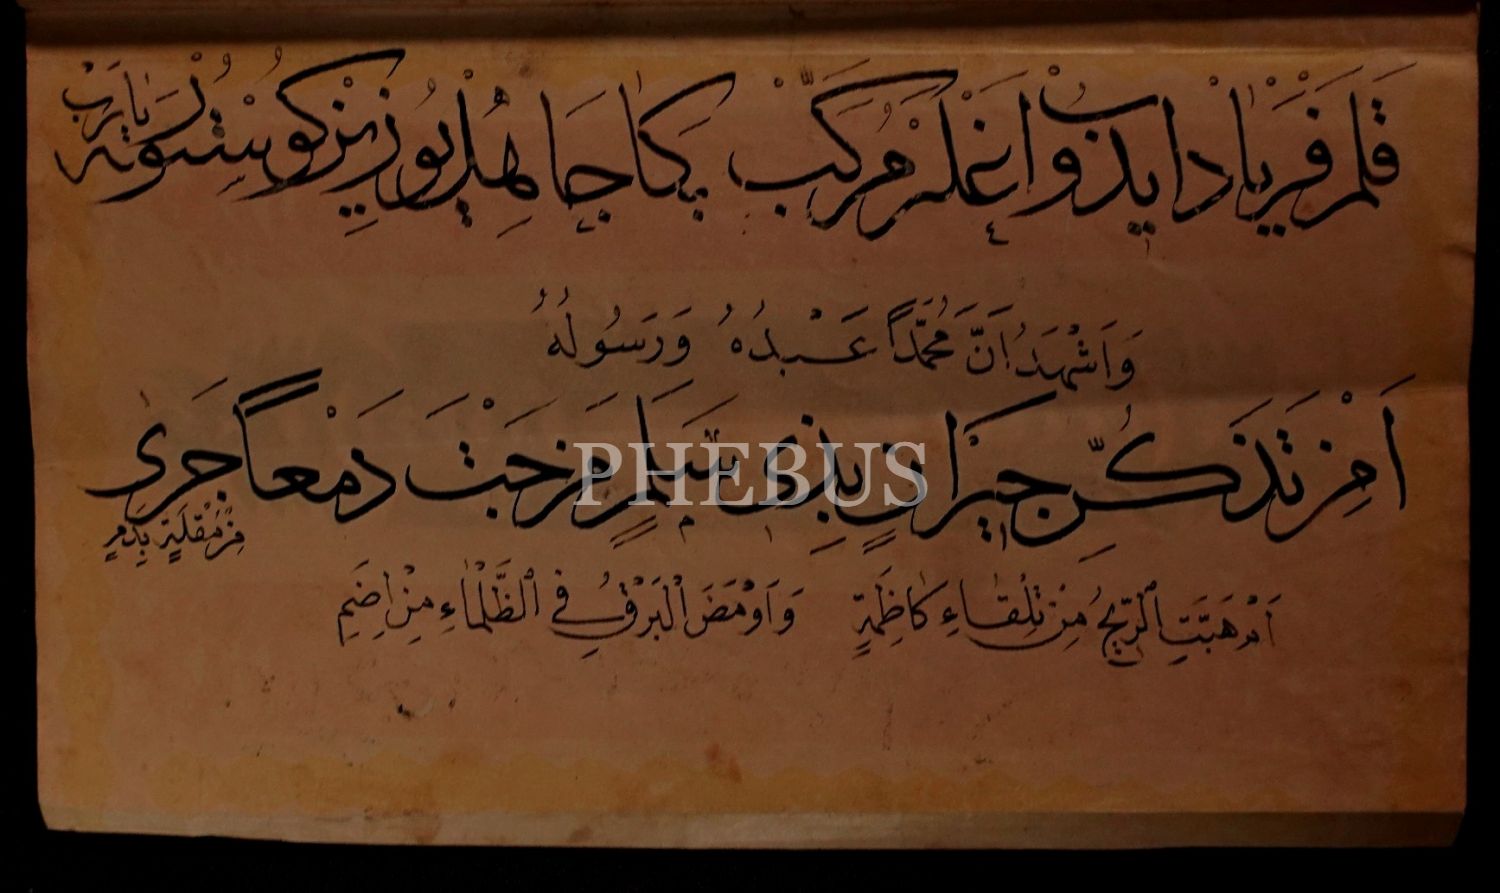 قلم فرياد ايدب و اغلر مركب بكا جاهل يوزين كوسترمه يارب
وَاَشْهَدُ اَنَّ مُحَمَّدًا عَبْدُهُ وَرَسُولُهُ
اَمِنْ تَذَكُّرِ جِيرَانٍ بِذِى سَلَمٍ مَزَجْتَ دَمْعًا جَرَى مِنْ مُقْلَةٍ بِدَمٍ
اَمْ هَبَّتِ الرِّيحُ مِنْ تِلْقَاءِ كَاظِمَةٍ وَاَوْمَضَ الْبَرْقُ فِى الظَّلْمَاءِ مِنْ اِضَمِ
PHEBUS